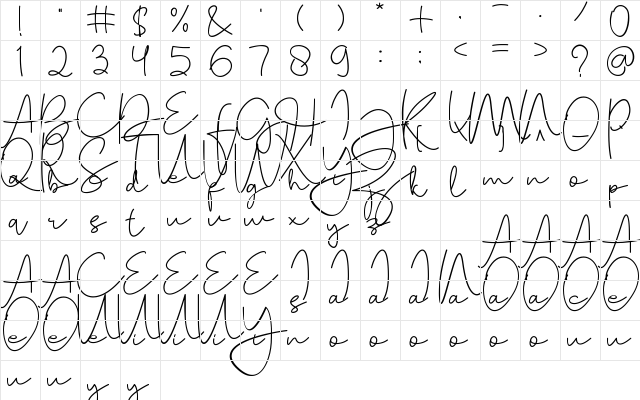 ! " # $ % & ' ( ) * + , - . / 0
1 2 3 4 5 6 7 8 9 : ; < = > ? @
A B C D E F G H I J K L M N O P
Q R S T U V W X Y Z [ ] ^ _
a b c d e f g h i j k l m n o p
q r s t u v w x y z A A A A
A A C E E E E I I I I N O O O O
O O U U U U Y s a a a a a a c e
e e e i i i i n o o o o o o u u
u u y y